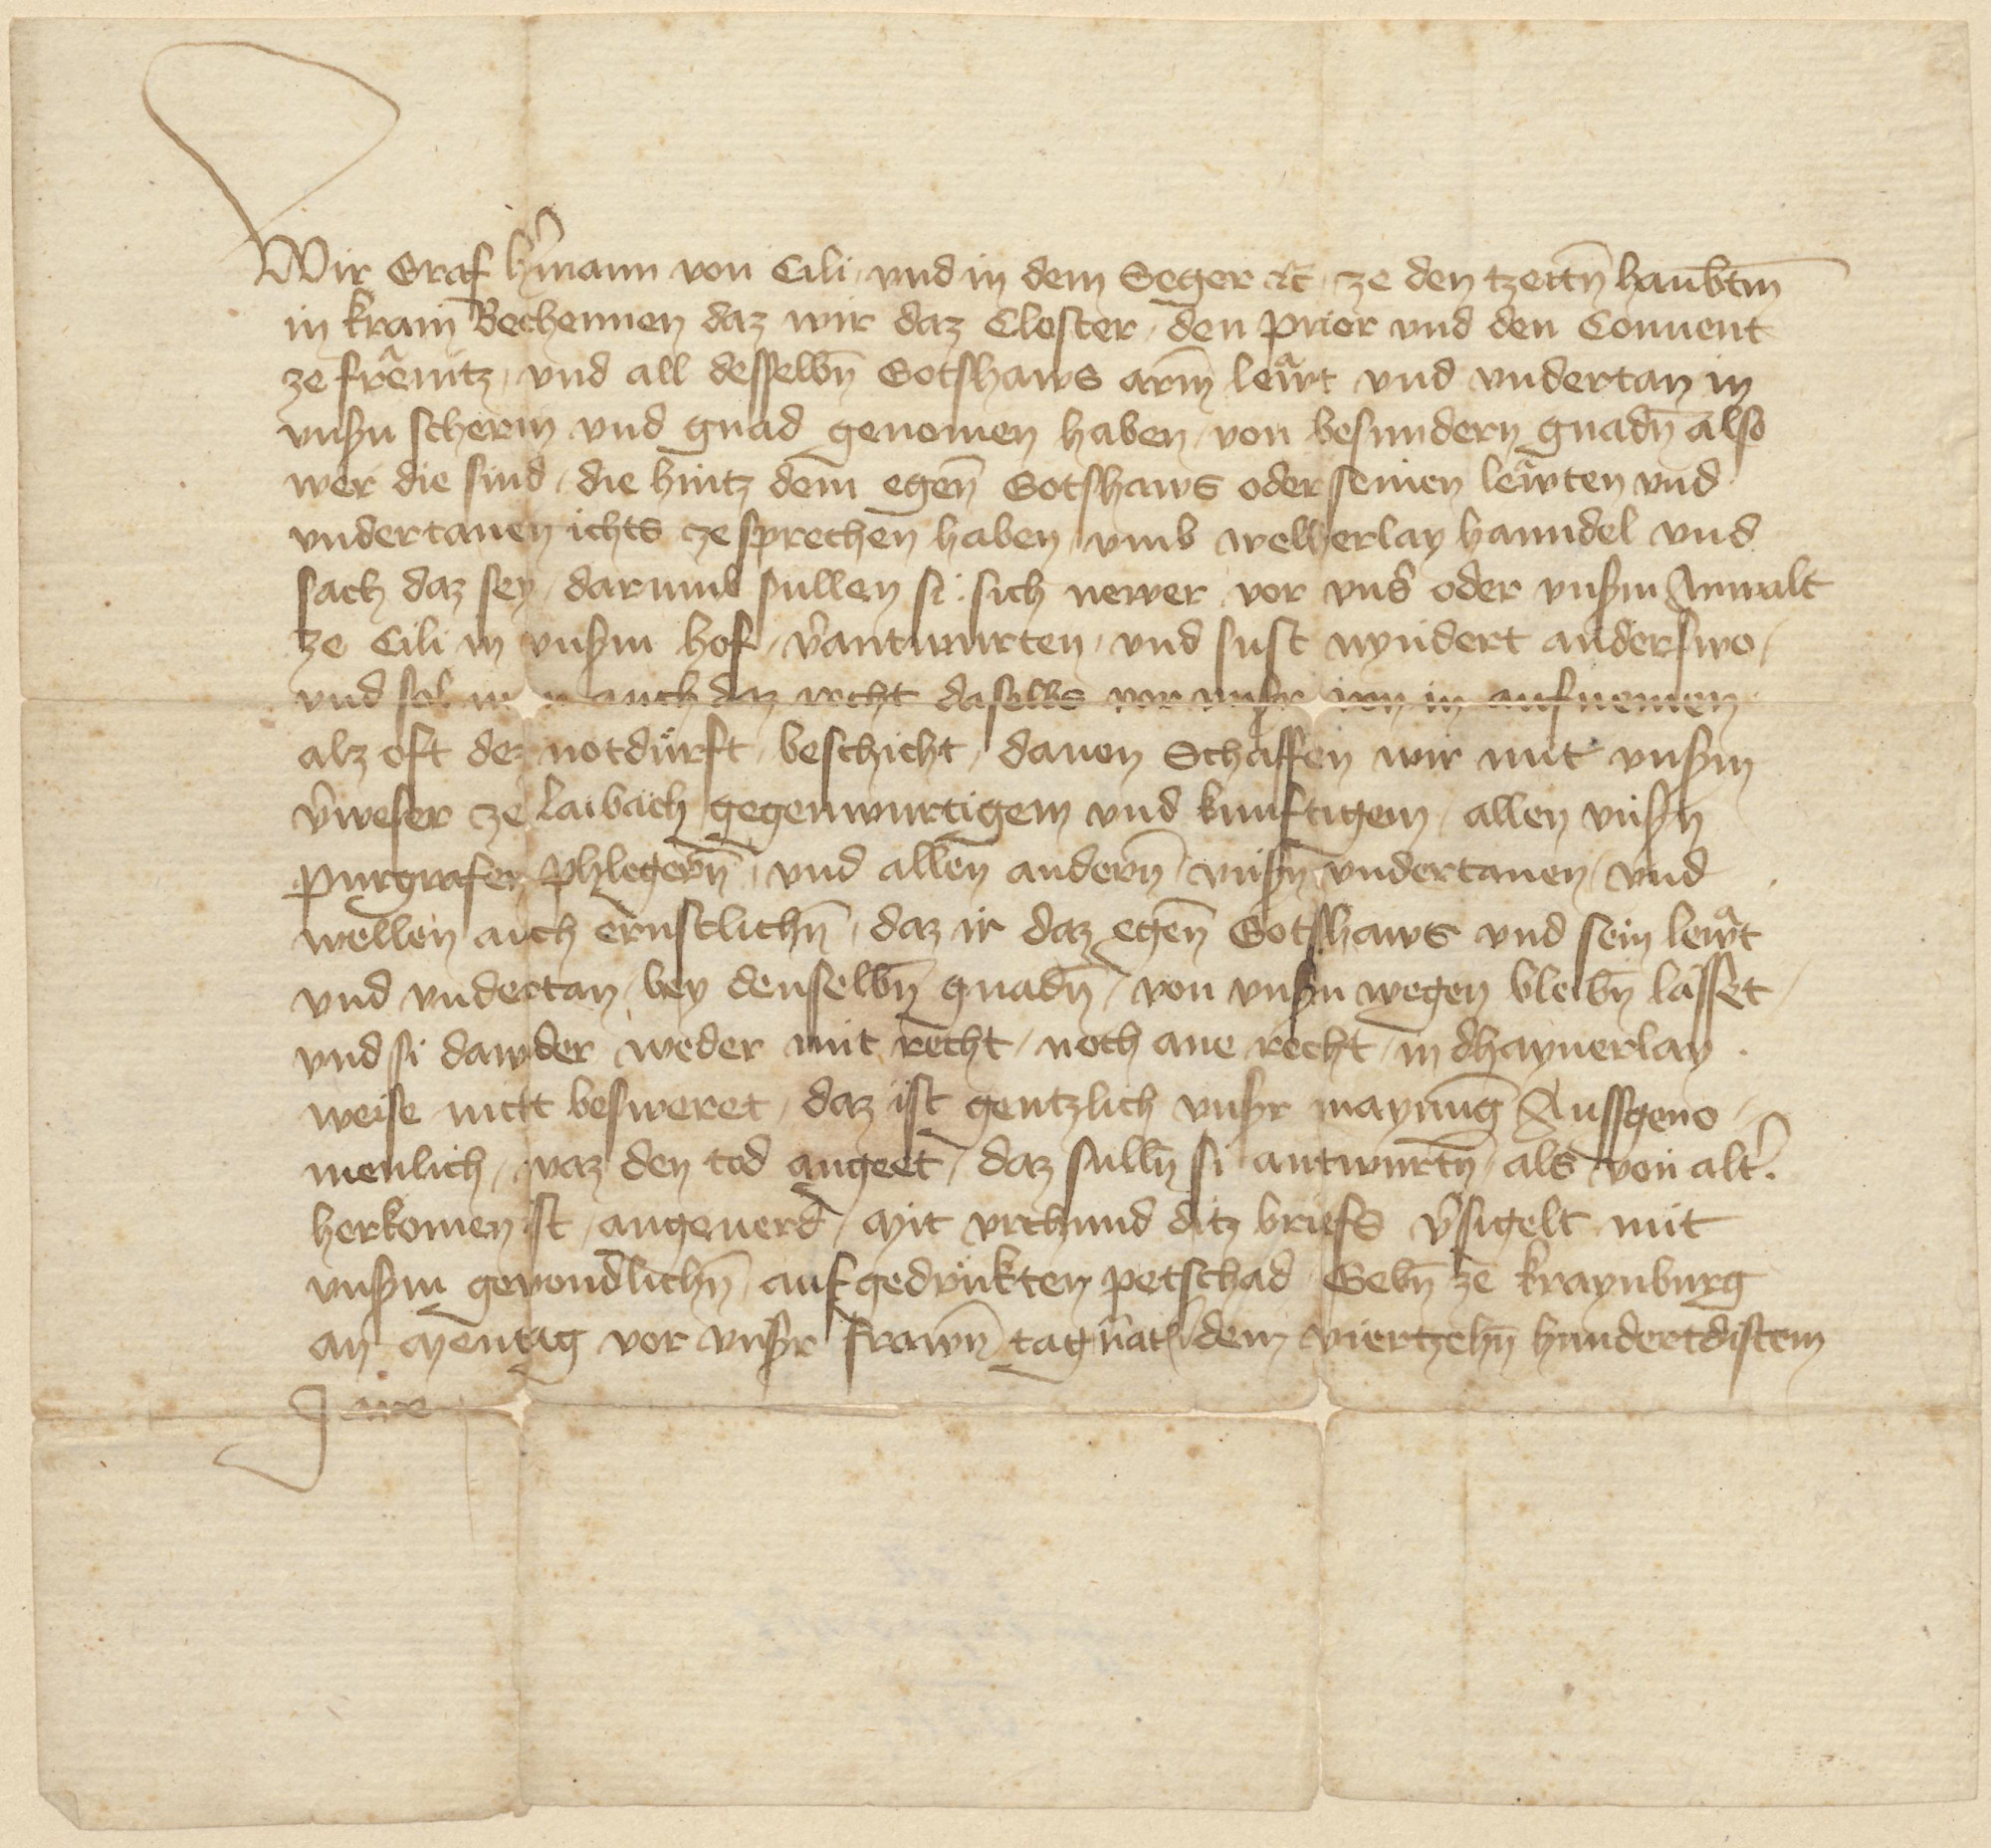 Wir Graf H̓mann von Cili, vnd in dem Seger &c̄ ze den tzeitn̄ haubtm̄
in krain Bechennen daz wir daz Closter, den prior vnd den Conuent
ze frênitz, vnd all desselbn̄ Gotshaws arm̄ lewt vnd vndertan in
vnsn̓ scherm vnd gnad genomen haben, von besundern gnadn̄ also
wer die sind, die hintz dem egen̄ Gotshaws oder seinen lewten vnd
vndertanen ichts ze sprechen haben, vmb welherlay hanndel vnd
sach daz sey, darumb sullen si sich newer vor vns oder vnsm̓ Anwalt
ze Cili in vnsm̓ hof, v̓antwurten, vnd sust nyndert anderswo,
vnd sol auch daz recht daselbs vor vnsr̓ in aufnemen
alz oft dez notdürft beschicht, dauon Schaffen wir mit vnsm̓
v̓weser ze Laibach gegenwurtigem vnd kunftigem, allen vnsn̓
purgrafen phlegern̄, vnd allen andern̄ vnsn̓ vndertanen, vnd
wellen auch ernstlichn̄, daz ir daz egen̄ Gotshaws vnd sein lewt
vnd vndertan, bey denselbn̄ gnadn̄, von vnsn̓ wegen bleibn̄ lasset,
vnd si dawider weder mit recht, noch ane recht, in dhaynerlay
weise nicht besweret, daz ist gentzlich vnsr̓ maynung Aussgeno-
menlich, waz den tod angeet, daz sulln̄ si antwurtn̄, als von alt̓
herkomen ist, angeuerd, Mit vrchund ditz briefs v̓sigelt mit
vnsm̓ gewondlichn̄, aufgedrukten petschad Gebn̄ ze kraynburg
an Mentag vor vnsr̓ frawn̄ tag nat̄ dem viertzehn̄ hundertdistem
Jare